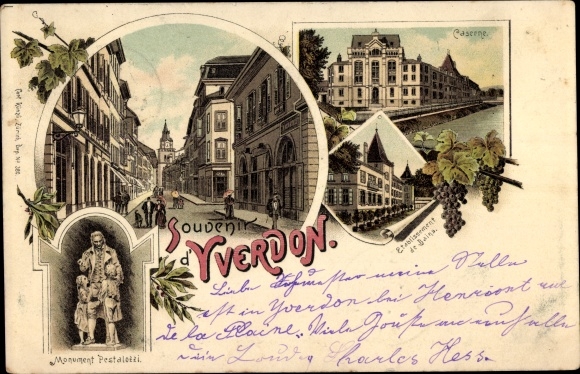 Caserne.
Souvenir
d'YVERDON.
Etablissement
de Bains.
Monument Pestalozzi.
Liebe meine Stelle
ist in Yverdon bei Henriont rue
de la Plaine. Viele Grüße an euch alle
dein Charles Hess.